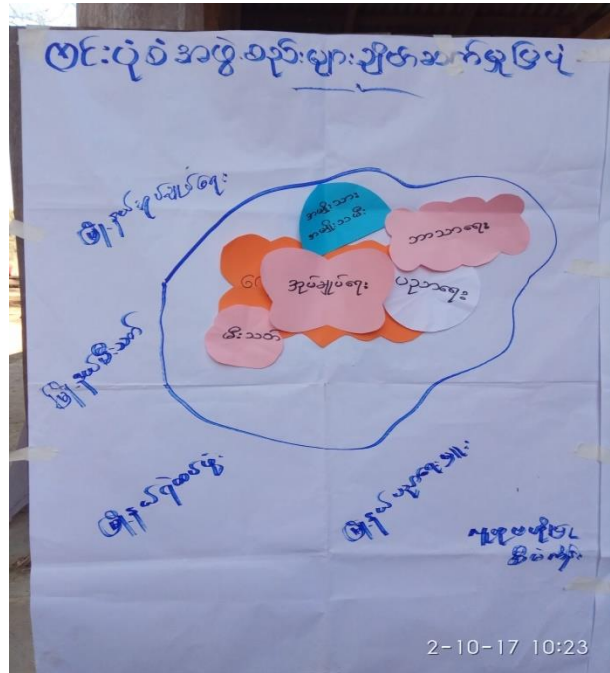 ကင်းပုံစံအဖွဲ့စည်းများချိတ်ဆက်မှုပြပုံ
မြို့နယ်အုပ်ချုပ်ရေး
အမျိုးသား
အမျိုးသမီး
ဘာသာရေး
အုပ်ချုပ်ရေး
ပညာရေး
မီးသတ်
မြို့နယ်မီးသတ်
မြို့နယ်ရဲတပ်ဖွဲ့
မြို့နယ်ပညာရေးမှူး
2-10-17 10:23